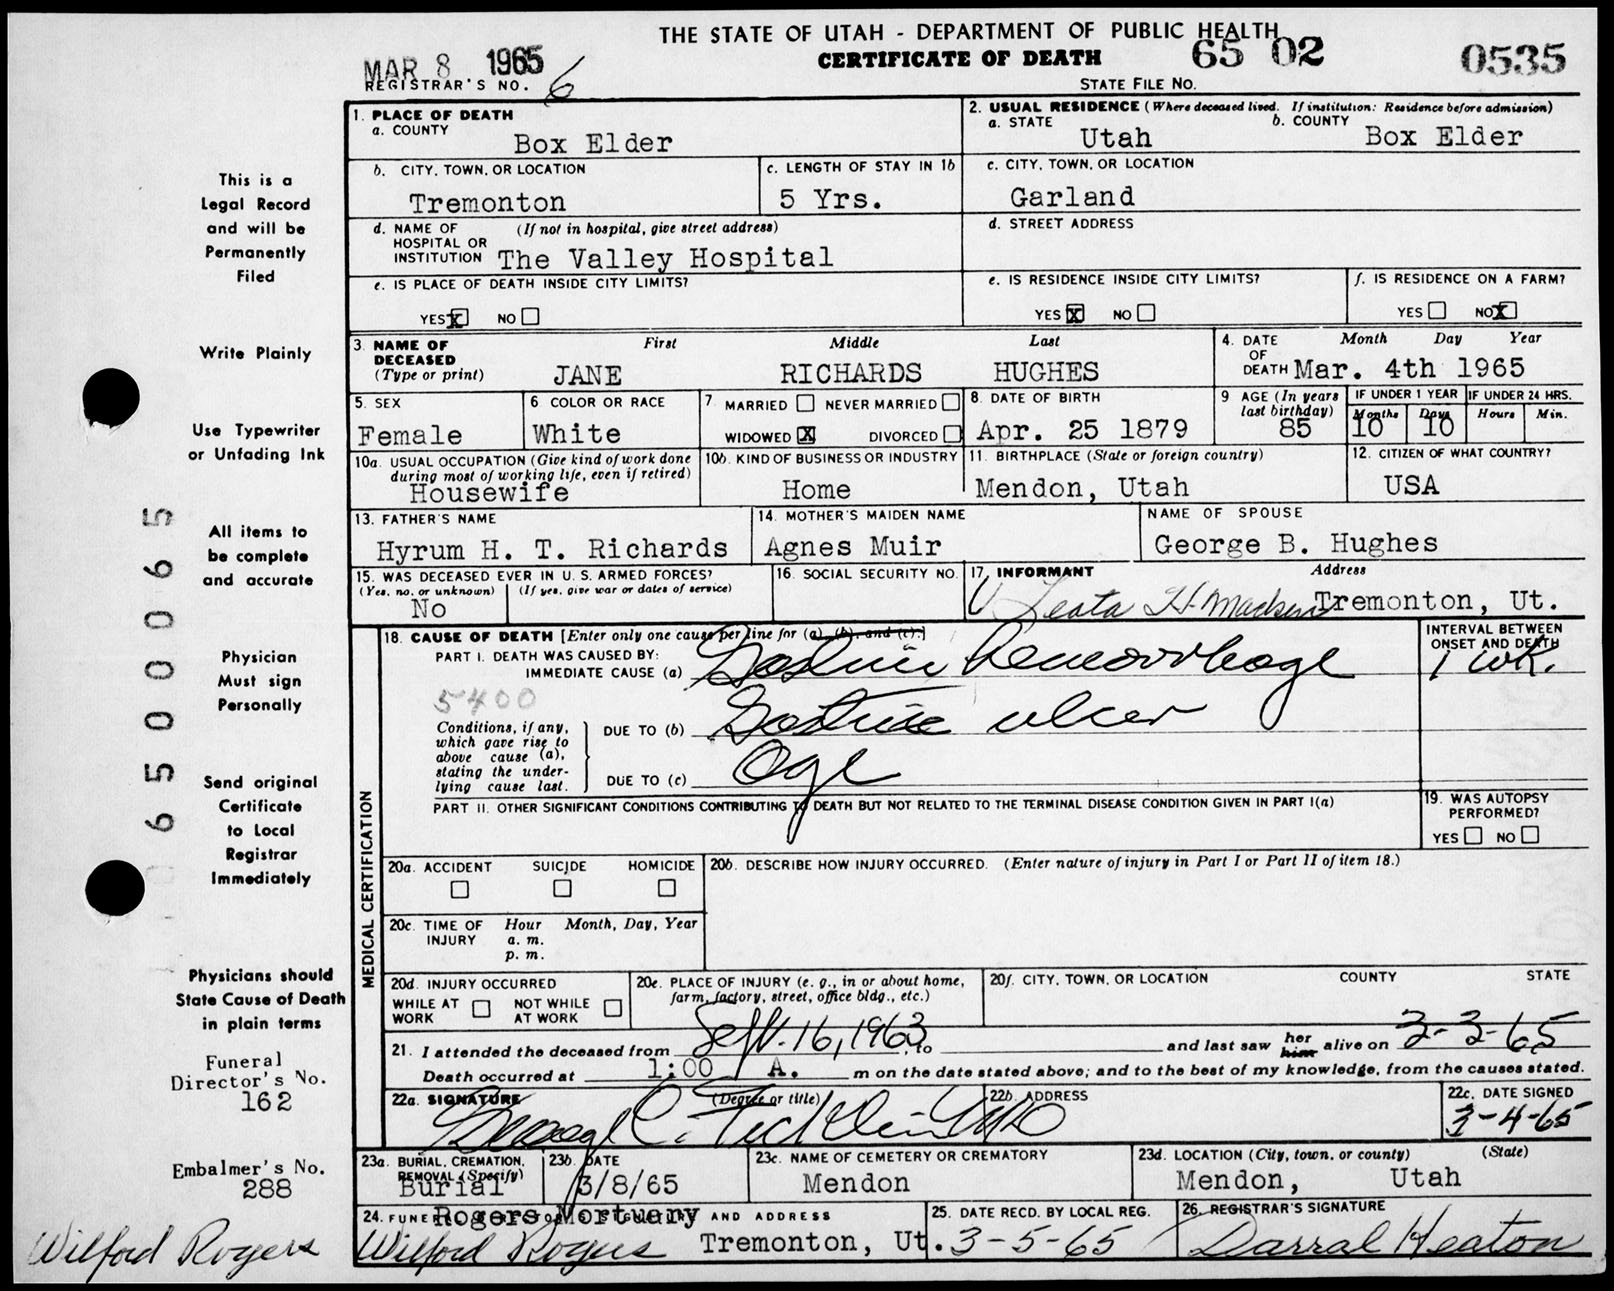 THE STATE OF UTAH - DEPARTMENT OF PUBLIC HEALTH
CERTIFICATE OF DEATH
MAR 8 1965
REGISTRAR'S NO. 6
STATE FILE NO. 65 02 0535
This is a
Legal Record
and will be
Permanently
Filed
Write Plainly
Use Typewriter
or Unfading Ink
All items to
be complete
and accurate
Physician
Must sign
Personally
Send original
Certificate
to Local
Registrar
Immediately
Physicians should
State Cause of Death
in plain terms
Funeral
Director's No.
162
Embalmer's No.
288
Wilford Rogers
065000065
1. PLACE OF DEATH
a. COUNTY
Box Elder
2. USUAL RESIDENCE (Where deceased lived. If institution: Residence before admission)
a. STATE
Utah
b. COUNTY
Box Elder
b. CITY, TOWN, OR LOCATION
Tremonton
c. LENGTH OF STAY IN 1b
5 Yrs.
c. CITY, TOWN, OR LOCATION
Garland
d. NAME OF HOSPITAL OR INSTITUTION (If not in hospital, give street address)
The Valley Hospital
d. STREET ADDRESS
e. IS PLACE OF DEATH INSIDE CITY LIMITS?
YES X NO
e. IS RESIDENCE INSIDE CITY LIMITS?
YES X NO
f. IS RESIDENCE ON A FARM?
YES NO X
3. NAME OF DECEASED (Type or print)
First Middle Last
JANE RICHARDS HUGHES
4. DATE OF DEATH Month Day Year
Mar. 4th 1965
5. SEX
Female
6. COLOR OR RACE
White
7. MARRIED NEVER MARRIED
WIDOWED X DIVORCED
8. DATE OF BIRTH
Apr. 25 1879
9. AGE (In years last birthday)
85
IF UNDER 1 YEAR IF UNDER 24 HRS.
Months Days Hours Min.
10 10
10a. USUAL OCCUPATION (Give kind of work done during most of working life, even if retired)
Housewife
10b. KIND OF BUSINESS OR INDUSTRY
Home
11. BIRTHPLACE (State or foreign country)
Mendon, Utah
12. CITIZEN OF WHAT COUNTRY?
USA
13. FATHER'S NAME
Hyrum H. T. Richards
14. MOTHER'S MAIDEN NAME
Agnes Muir
NAME OF SPOUSE
George B. Hughes
15. WAS DECEASED EVER IN U. S. ARMED FORCES?
(Yes, no, or unknown) (If yes, give war or dates of service)
No
16. SOCIAL SECURITY NO.
17. INFORMANT Address
Leata H. Madsen Tremonton, Ut.
MEDICAL CERTIFICATION
18. CAUSE OF DEATH [Enter only one cause per line for (a), (b), and (c).]
INTERVAL BETWEEN ONSET AND DEATH
PART I. DEATH WAS CAUSED BY:
IMMEDIATE CAUSE (a) Gastric hemorrhage 1 wk.
5400
Conditions, if any,
which gave rise to
above cause (a),
stating the under-
lying cause last.
DUE TO (b) Gastric ulcer
DUE TO (c) Age
PART II. OTHER SIGNIFICANT CONDITIONS CONTRIBUTING TO DEATH BUT NOT RELATED TO THE TERMINAL DISEASE CONDITION GIVEN IN PART I(a)
19. WAS AUTOPSY PERFORMED?
YES NO
20a. ACCIDENT SUICIDE HOMICIDE
20b. DESCRIBE HOW INJURY OCCURRED. (Enter nature of injury in Part I or Part II of item 18.)
20c. TIME OF INJURY Hour Month, Day, Year
a. m.
p. m.
20d. INJURY OCCURRED
WHILE AT WORK NOT WHILE AT WORK
20e. PLACE OF INJURY (e. g., in or about home, farm, factory, street, office bldg., etc.)
20f. CITY, TOWN, OR LOCATION COUNTY STATE
21. I attended the deceased from Sept. 16, 1963, to and last saw her him alive on 3-3-65
Death occurred at 1:00 A. m on the date stated above; and to the best of my knowledge, from the causes stated.
22a. SIGNATURE (Degree or title)
22b. ADDRESS
22c. DATE SIGNED
3-4-65
23a. BURIAL, CREMATION, REMOVAL (Specify)
Burial
23b. DATE
3/8/65
23c. NAME OF CEMETERY OR CREMATORY
Mendon
23d. LOCATION (City, town, or county) (State)
Mendon, Utah
24. FUNERAL AND ADDRESS
Rogers Mortuary
Wilford Rogers Tremonton, Ut.
25. DATE RECD. BY LOCAL REG.
3-5-65
26. REGISTRAR'S SIGNATURE
Darral Heaton